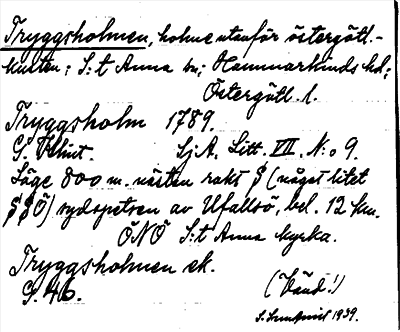 Tryggsholmen, holme utanför östergötl.-
kusten; S:t Anna sn; Hammarkinds hd;
Östergötl. l.
Tryggsholm 1789.
G. Wehut.  Sj.A. Litt. VII. N:o 9.
Läge 800 m. nästen rakt S (något litet
SSÖ) sydspetsen av Ufallsö, bel. 12 km.
ÖNÖ S:t Anna kyrka.
Tryggsholmen ek.
G. 46.
(bänd!)
1939.